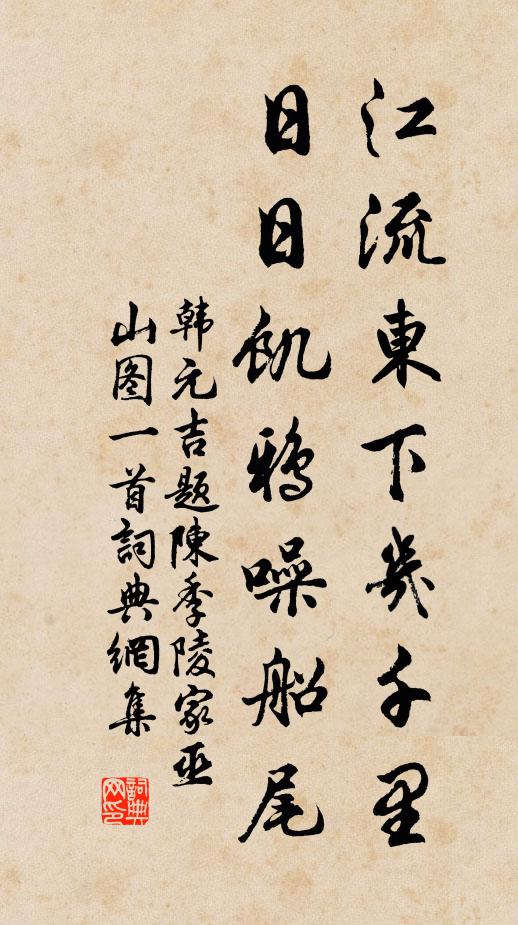 江流東下幾千里
日日飢鴉噪船尾
韩元吉題陳季陵家巫
山图一首詞典網集
詞典
网印